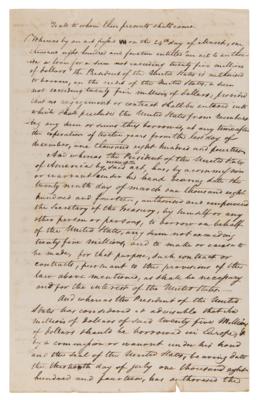 To all to whom these presents shall come.
Whereas by an act passed on the 24th day of March, one
thousand eight hundred and fourteen entitled an act to author-
ise a loan for a sum not exceeding twenty five millions
of dollars" the President of the United States is authorised
to borrow, on the credit of the United States, a sum
not exceeding twenty five millions of dollars, provided
that no engagement or contract shall be entered into
which shall preclude the United States from reimburs-
ing any sum or sums thus borrowed, at any time after
the expiration of twelve years from the last day of
december, one thousand eight hundred and fourteen
And whereas the President of the United States
of America by, did by a commission
or warrant under his hand bearing date the
twenty ninth day of march one thousand eight
hundred and fourteen, authorise and empower
the Secretary of the Treasury, by himself or any
other person or persons, to borrow on behalf
of the United States, any sum not exceeding
twenty five millions, and to make or cause to
be made, for that purpose, such contract or
contracts, pursuant to the provisions of the
law above mentioned, as shall be necessary
and for the interest of the United States.
And whereas the President of the United
States has considered it adviseable that six
millions of dollars of said twenty five Millions
of dollars should be borrowed in Europe, &
by a commission or warrant under his hand
and the seal of the United States, bearing date
the day of july one thousand eight
hundred and fourteen, has authorised the